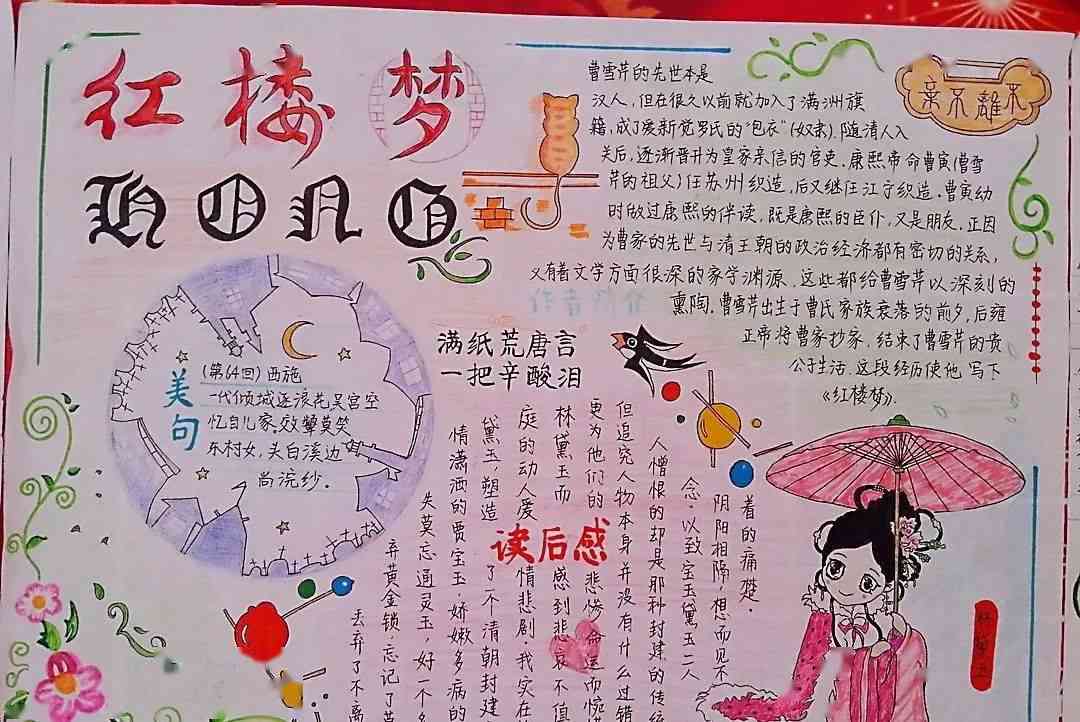 红楼梦
HONG
不離不棄
曹雪芹的先世本是
汉人，但在很久以前就加入了满洲旗
籍，成了爱新觉罗氏的“包衣”(奴隶)，随清人入
关后，逐渐晋升为皇家亲信的官吏。康熙帝命曹寅(曹雪
芹的祖父)任苏州织造，后又继任江宁织造。曹寅幼
时做过康熙的伴读，既是康熙的臣仆，又是朋友，正因
为曹家的先世与清王朝的政治经济都有密切的关系，
又有着文学方面很深的家学渊源，这些都给曹雪芹以深刻的
熏陶。曹雪芹出生于曹氏家族衰落的前夕，后雍
正帝将曹家抄家，结束了曹雪芹的贵
公子生活，这段经历使他写下
《红楼梦》.
满纸荒唐言
一把辛酸泪
美句
(第64回)西施
一代倾城逐浪花吴宫空
忆自儿家。效颦莫笑
东村女，头白溪边
尚浣纱.
读后感
丢弃了不离
弃黄金锁，忘记了莫
失莫忘通灵玉，好一个多
情潇洒的贾宝玉，娇嫩多病的
黛玉，塑造了一个清朝封建
庭的动人爱情悲剧，我实在
林黛玉而感到悲哀不值
更为他们的悲惨命运而惋惜
但追究人物本身并没有什么过错
人憎恨的却是那种封建的传统
念，以致宝玉黛玉二人
阴阳相隔，想而见不
着的痛楚。